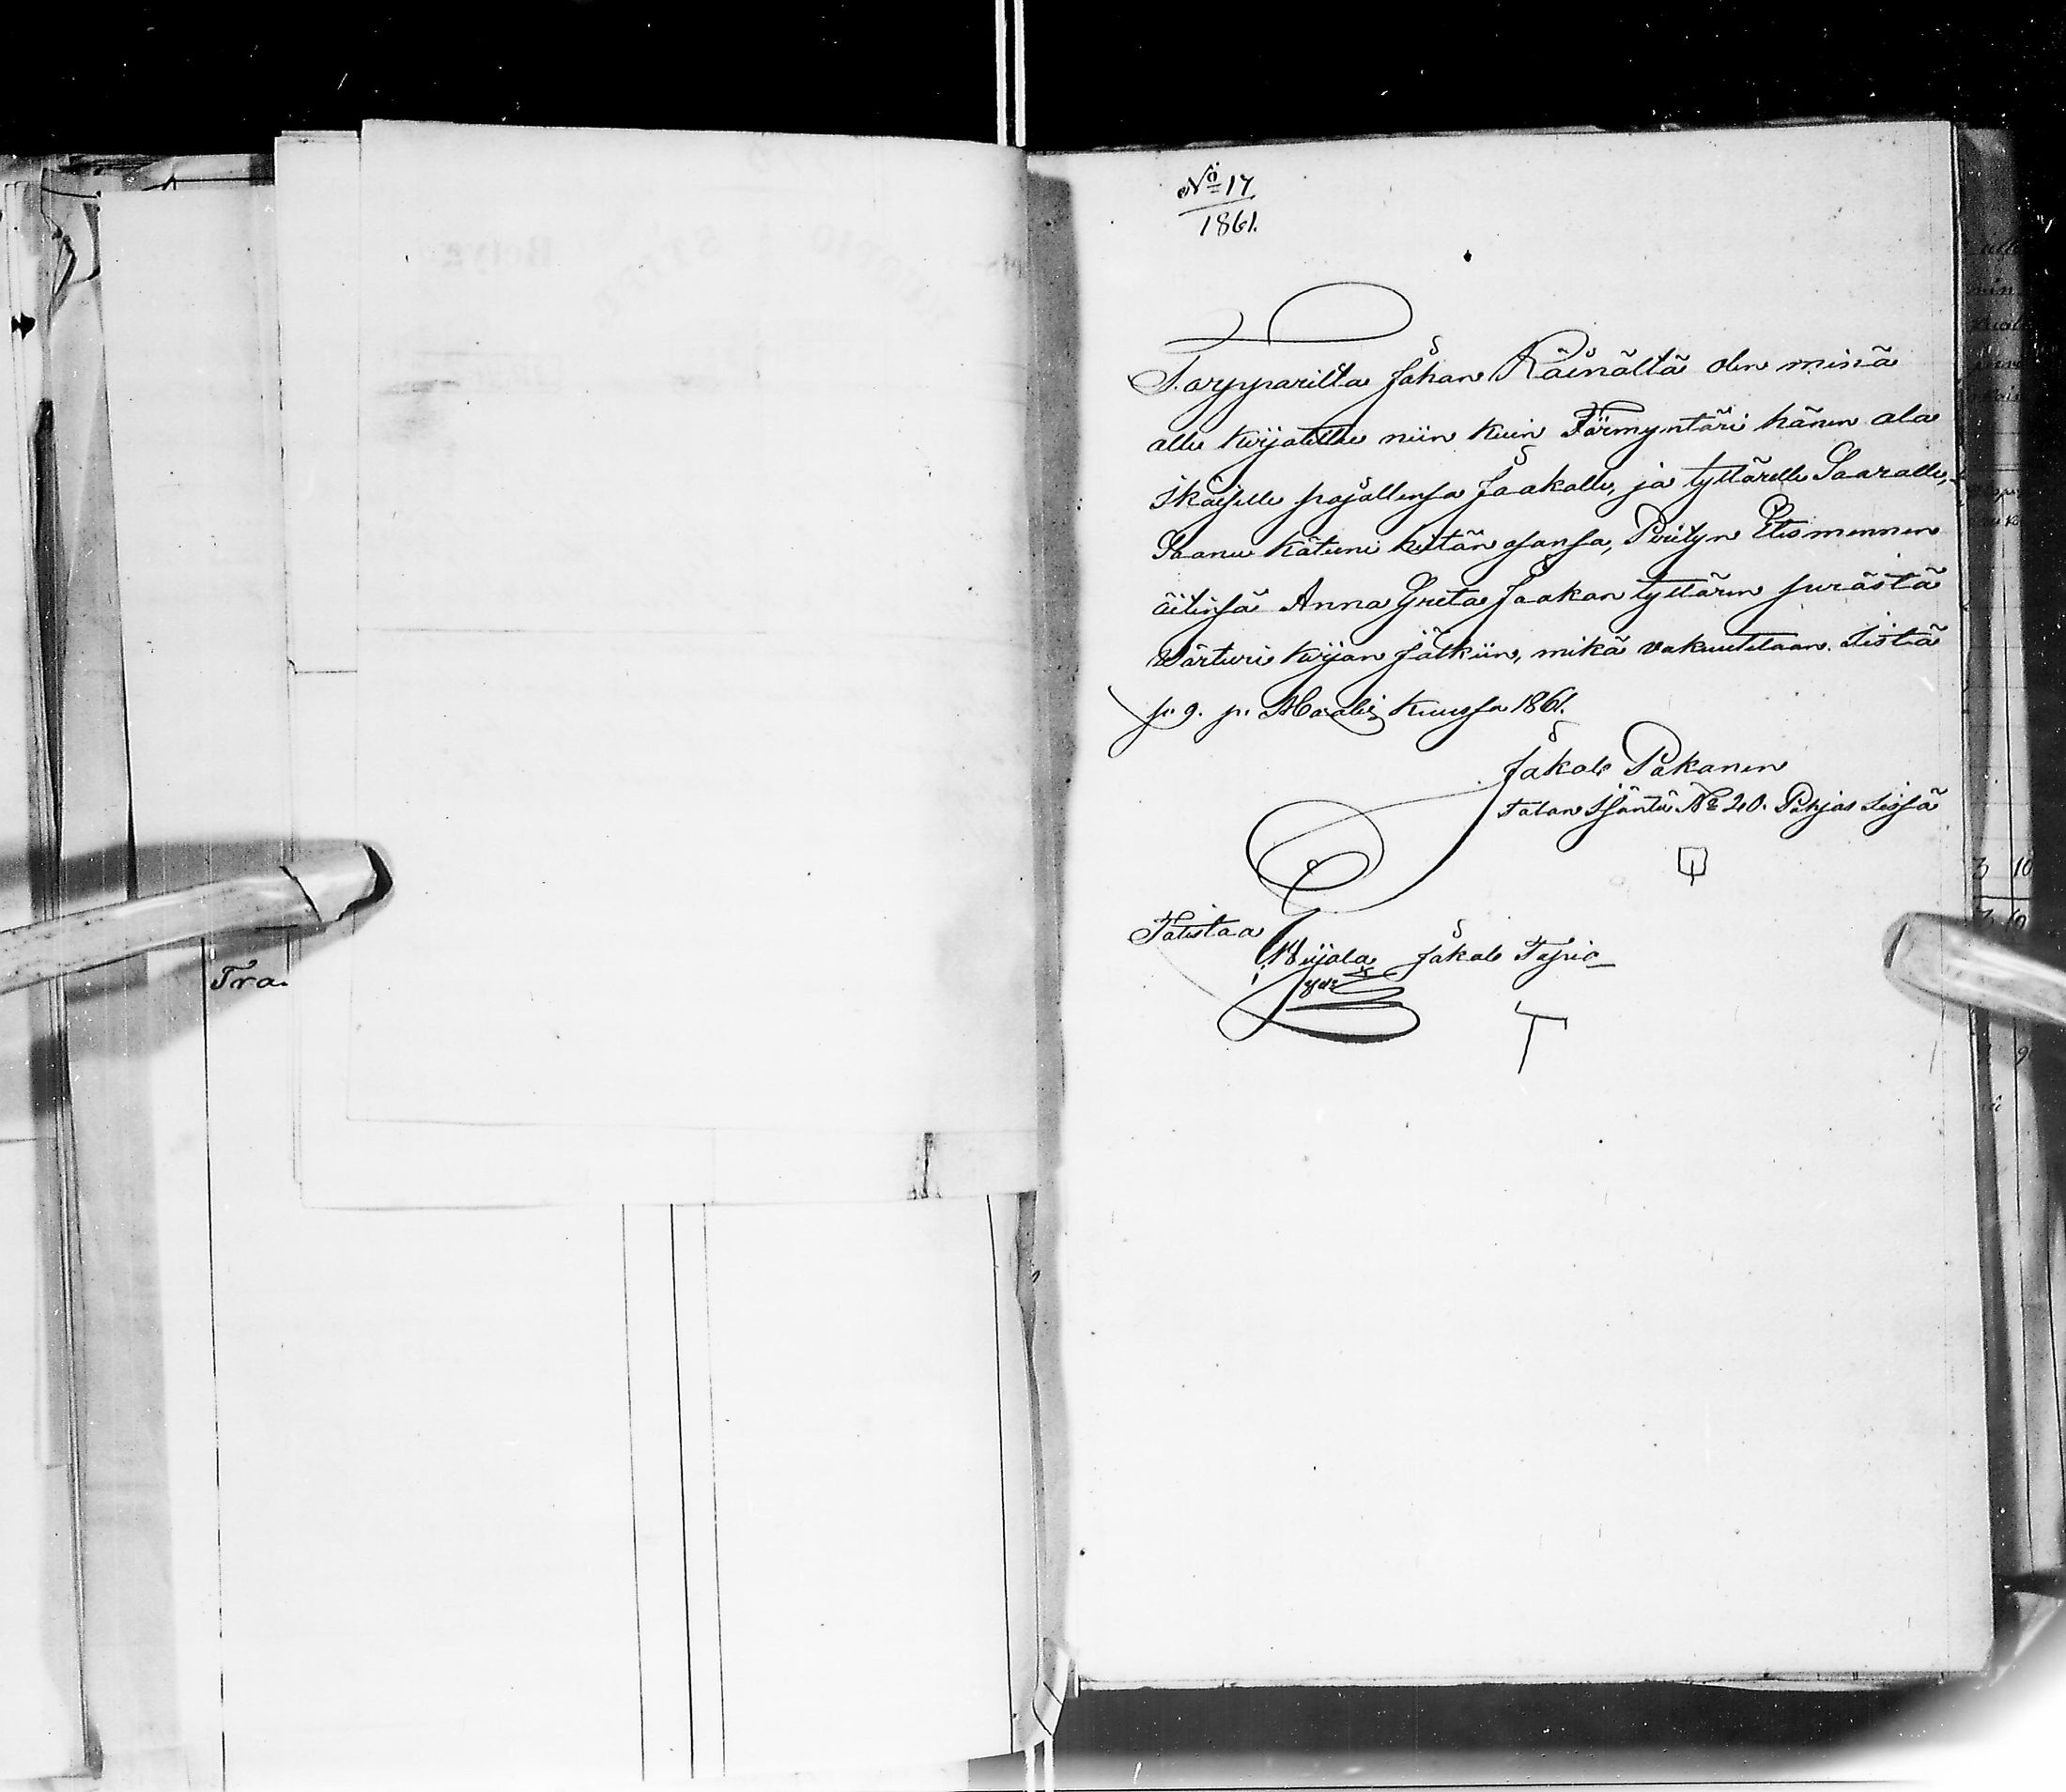 Tra.
No 17
1861.
Torpparilta Johan Räinältä olen minä
alle kirjoittu niin kuin Förmyntäri hänen ala
ikäiselle pojallensa Jaakolle, ja tyttärelle Saaralle,
Saanu käteeni heitän osansa, Perityn Edesmennen
äitinsä Anna Greta Jaakon tyttären perästä
Värterin kirjan jälkiin, mikä vakuutetaan. Listä
se 9. p: Maalis kuussa 1861.
Jakob Pakanen
Talon Isäntä No 20. Pohjas Lissä
Totistaa
Jakob Tapio